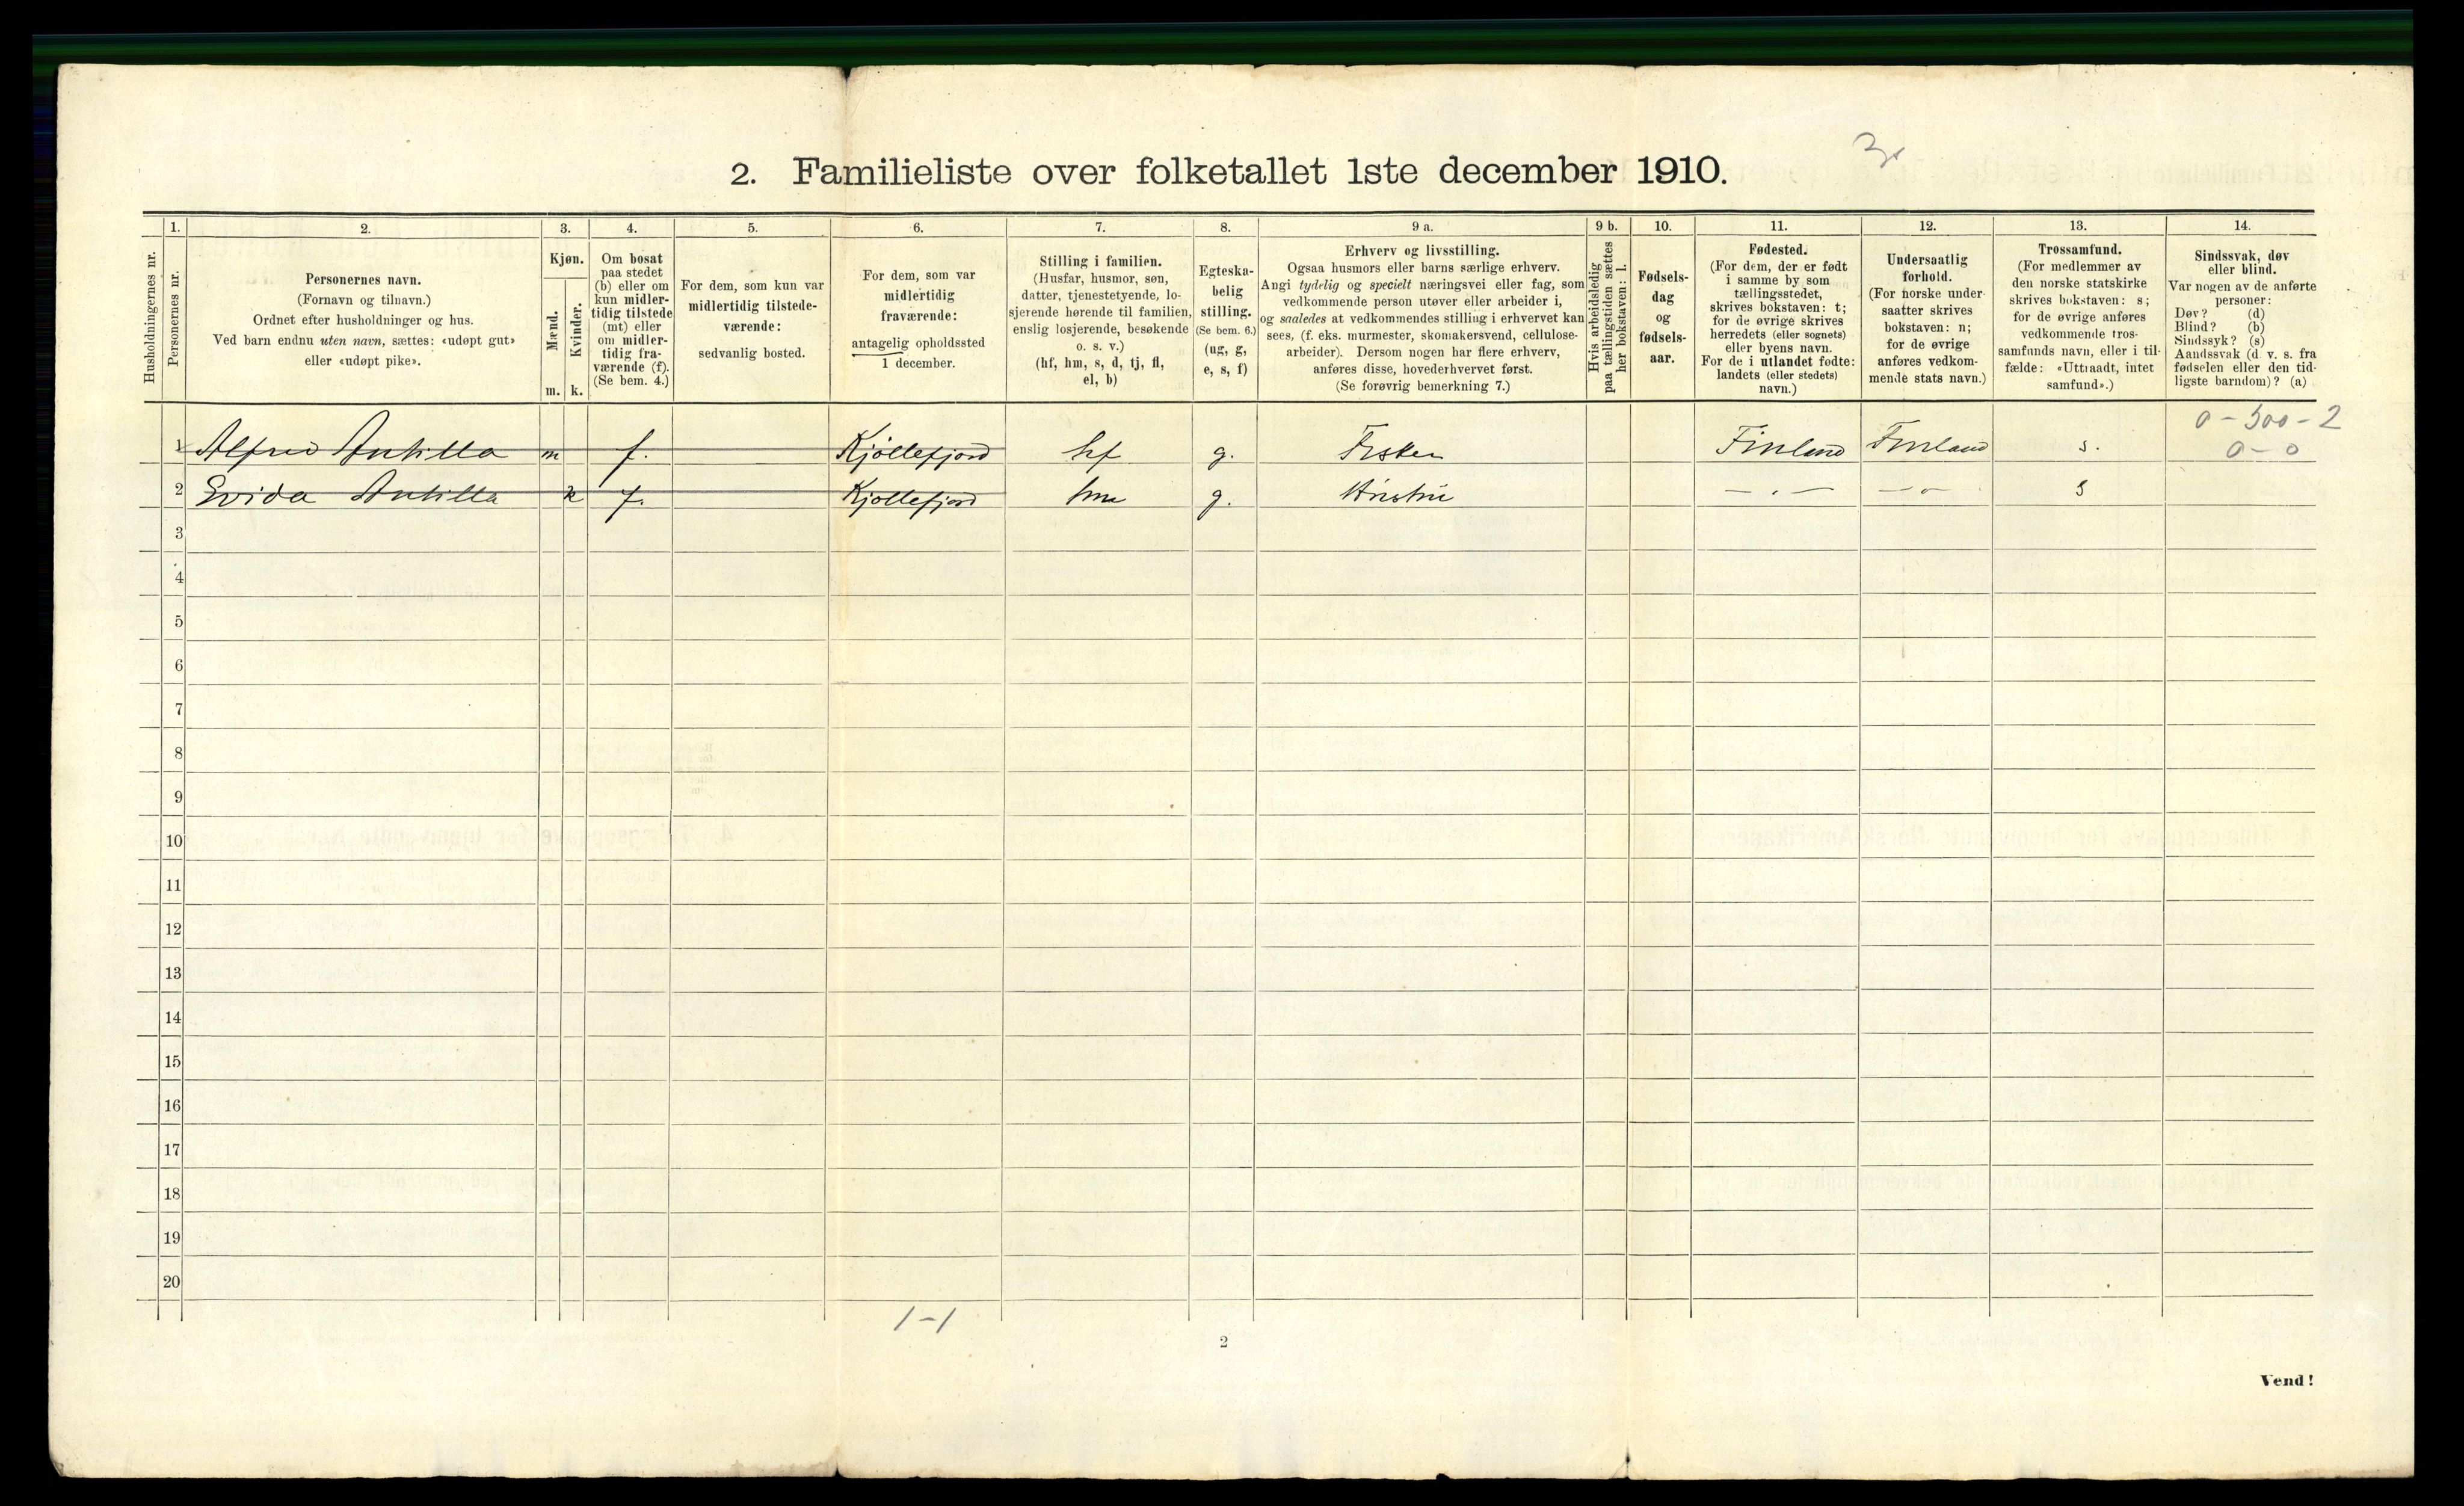 2. Familieliste over folketallet 1ste december 1910.
Husholdningernes nr.
1.
Personernes nr.
2.
Personernes navn.
(Fornavn og tilnavn.)
Ordnet efter husholdninger og hus.
Ved barn endnu uten navn, sættes: «udøpt gut»
eller «udøpt pike».
3.
Kjøn.
Mænd.
Kvinder.
m. k.
4.
Om bosat
paa stedet
(b) eller om
kun midler-
tidig tilstede
(mt) eller
om midler-
tidig fra-
værende (f).
(Se bem. 4.)
5.
For dem, som kun var
midlertidig tilstede-
værende:
sedvanlig bosted.
6.
For dem, som var
midlertidig
fraværende:
antagelig opholdssted
1 december.
7.
Stilling i familien.
(Husfar, husmor, søn,
datter, tjenestetyende, lo-
sjerende hørende til familien,
enslig losjerende, besøkende
o. s. v.)
(hf, hm, s, d, tj, fl,
el, b)
8.
Egteska-
belig
stilling.
(Se bem. 6.)
(ug, g,
e, s, f)
9 a.
Erhverv og livsstilling.
Ogsaa husmors eller barns særlige erhverv.
Angi tydelig og specielt næringsvei eller fag, som
vedkommende person utøver eller arbeider i,
og saaledes at vedkommendes stilling i erhvervet kan
sees, (f. eks. murmester, skomakersvend, cellulose-
arbeider). Dersom nogen har flere erhverv,
anføres disse, hovederhvervet først.
(Se forøvrig bemerkning 7.)
9 b.
Hvis arbeidsledig
paa tællingstiden sættes
her bokstaven: l.
10.
Fødsels-
dag
og
fødsels-
aar.
11.
Fødested.
(For dem, der er født
i samme by som
tællingsstedet,
skrives bokstaven: t;
for de øvrige skrives
herredets (eller sognets)
eller byens navn.
For de i utlandet fødte:
landets (eller stedets)
navn.)
12.
Undersaatlig
forhold.
(For norske under-
saatter skrives
bokstaven: n;
for de øvrige
anføres vedkom-
mende stats navn.)
13.
Trossamfund.
(For medlemmer av
den norske statskirke
skrives bokstaven: s;
for de øvrige anføres
vedkommende tros-
samfunds navn, eller i til-
fælde: «Uttraadt, intet
samfund».)
14.
Sindssvak, døv
eller blind.
Var nogen av de anførte
personer:
Døv? (d)
Blind? (b)
Sindssyk? (s)
Aandssvak (d. v. s. fra
fødselen eller den tid-
ligste barndom)? (a)
0 - 300 - 2
0 - 0
1 Alfred Antilla m f. Kjøllefjord hf g. Fisker Finland Finland s.
2 Evida Antilla k f. Kjøllefjord hm g. Hustru — „ — — „ — s
3
4
5
6
7
8
9
10
11
12
13
14
15
16
17
18
19
20
1 - 1
2
Vend!